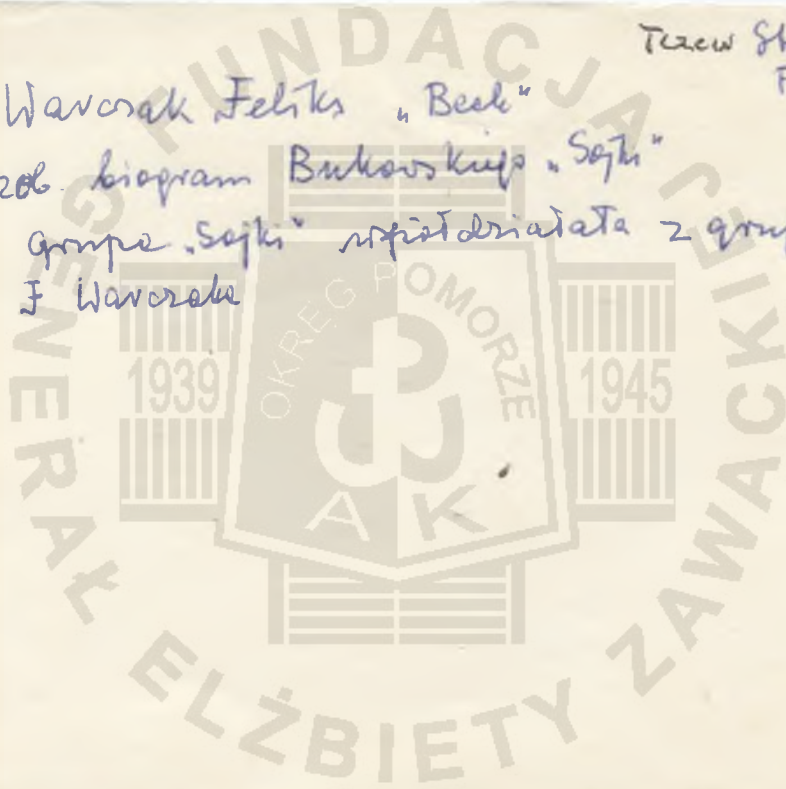 Tczew Sk
F
Warczak Feliks „Beck"
zob. biogram Bukowskiego „Sójki"
grupa „Sojki" współdziałała z grup
F Warczaka
FUNDACJA GENERAŁ ELŻBIETY ZAWACKIEJ
OKRĘG POMORZE
1939
1945
A K